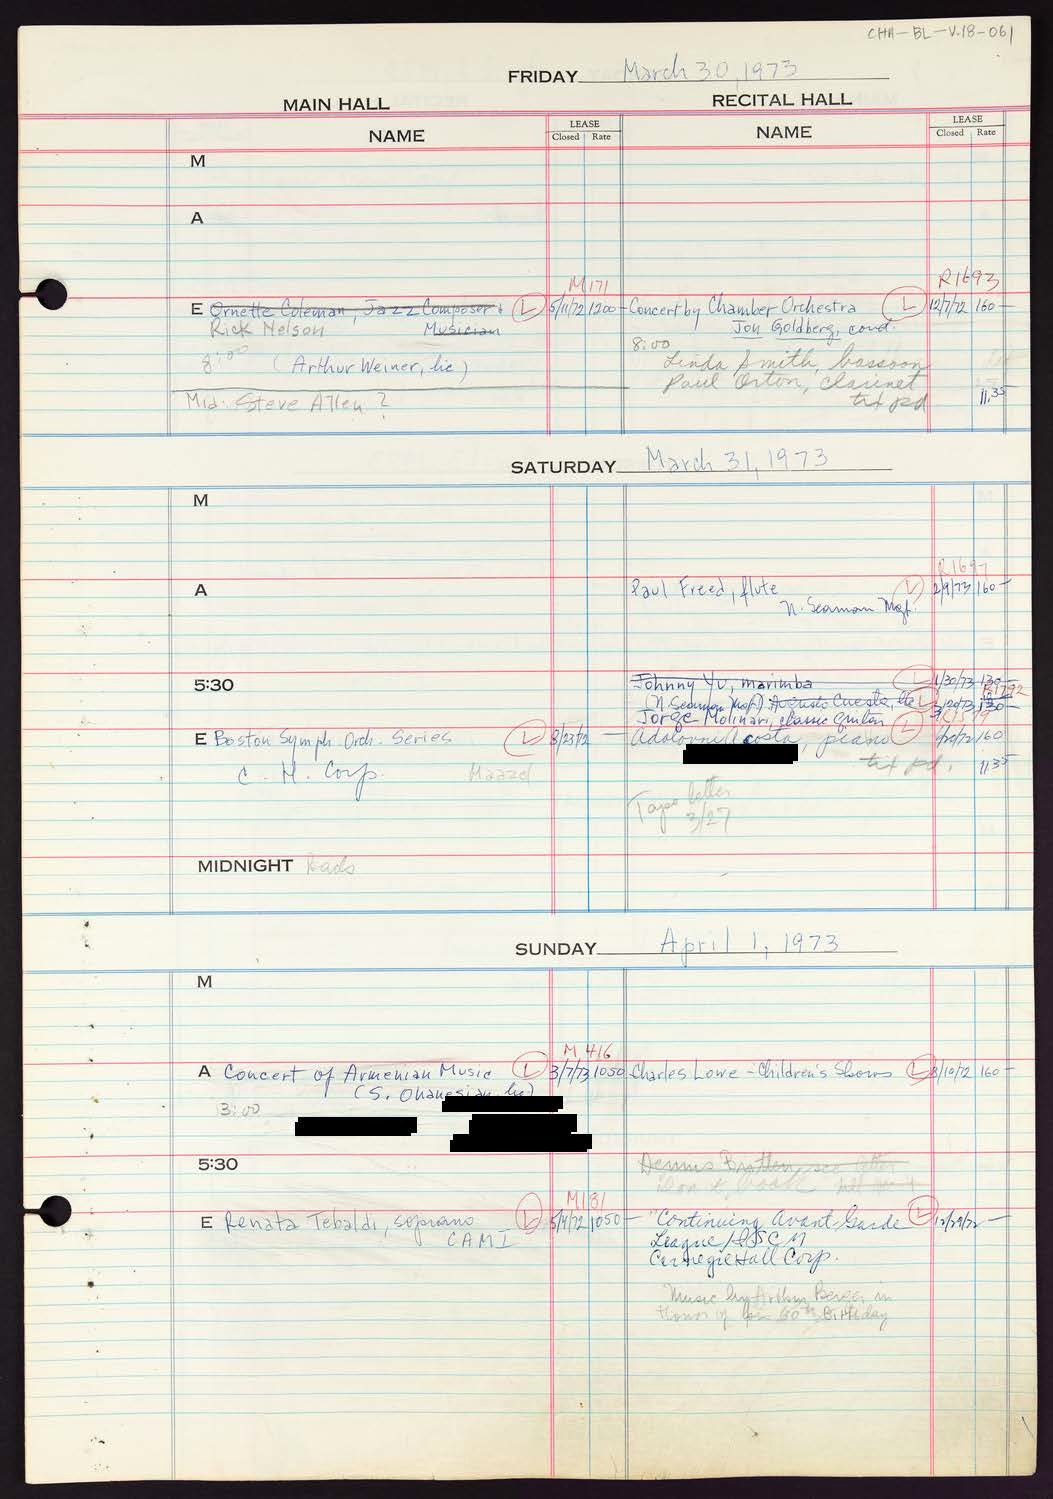 CHA-BL-V.18-061
FRIDAY March 30, 1973
MAIN HALL RECITAL HALL
NAME LEASE Closed Rate NAME LEASE Closed Rate
M
A
M171 R1693
E Ornette Coleman, Jazz Composer & L 5/11/72 1200 — Concert by Chamber Orchestra L 12/7/72 160 —
Rick Nelson Musician Jon Goldberg, cond.
8:00 (Arthur Weiner, lic) 8:00
Linda Smith, bassoon
Paul Orton, clarinet
Mid. Steve Allen ? tix pd 11.35
SATURDAY March 31, 1973
M
R1697
A Paul Freed, flute L 2/9/73 160 —
N. Seaman Mgt.
5:30 Johnny Yu, marimba L 1/30/73 130 —
(N. Seaman Mgt.) Augusto Cuesta, lic L
Jorge Molinari, classic guitar
E Boston Symph. Orch. Series L 3/23/72 — Acosta, piano L 160
C. H. Corp. Maazel tix pd. 11.35
Tape letter
3/27
MIDNIGHT Rads
SUNDAY April 1, 1973
M
M 416
A Concert of Armenian Music L 3/7/73 1050 Charles Lowe - Children's Shows L 8/10/72 160 —
(S. Ohanesian, lic)
3:00
5:30 Dennis Britten, see letter
Don't book
M181
E Renata Tebaldi, soprano L 5/4/72 1050 — "Continuing Avant-Garde L 12/29/72 —
CAMI League/ISCM
Carnegie Hall Corp.
Music by Arthur Berger in
Honor of his 60th Birthday